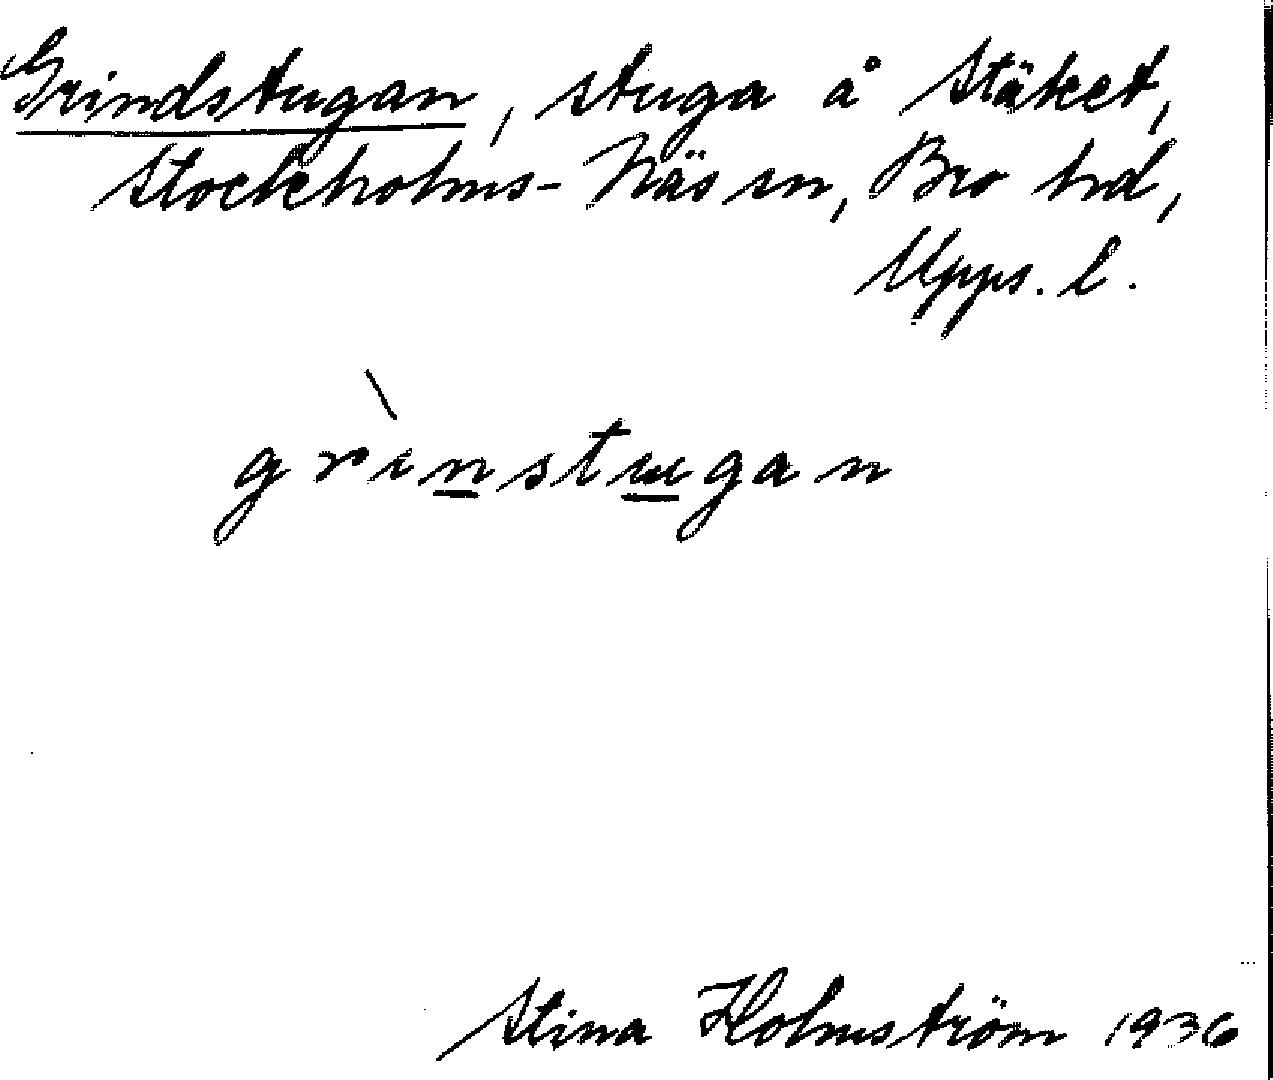 Grindstugan, stuga å Stäket,
Stockholms-Näs sn, Bro hd,
Upps. l.
grìnstugan
Stina Holmström 1936